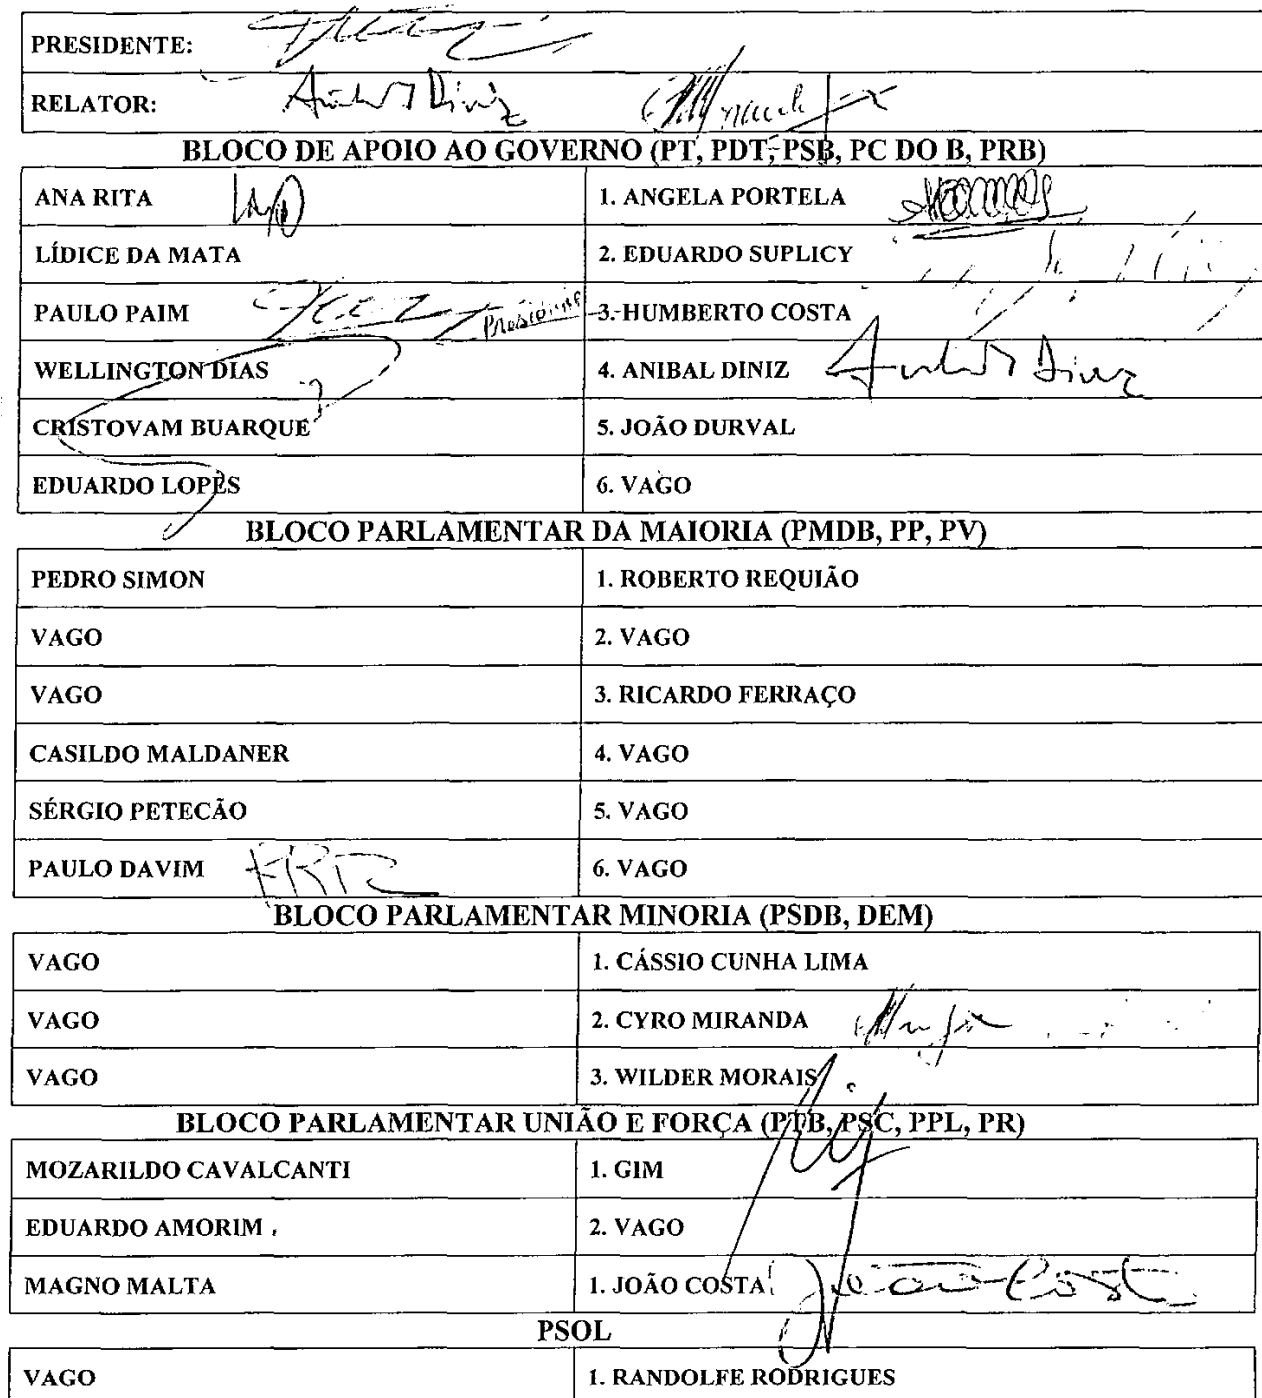 PRESIDENTE:
RELATOR: Anibal Diniz
BLOCO DE APOIO AO GOVERNO (PT, PDT, PSB, PC DO B, PRB)
ANA RITA 1. ANGELA PORTELA
LÍDICE DA MATA 2. EDUARDO SUPLICY
PAULO PAIM Presidente 3. HUMBERTO COSTA
WELLINGTON DIAS 4. ANIBAL DINIZ Anibal Diniz
CRISTOVAM BUARQUE 5. JOÃO DURVAL
EDUARDO LOPES 6. VAGO
BLOCO PARLAMENTAR DA MAIORIA (PMDB, PP, PV)
PEDRO SIMON 1. ROBERTO REQUIÃO
VAGO 2. VAGO
VAGO 3. RICARDO FERRAÇO
CASILDO MALDANER 4. VAGO
SÉRGIO PETECÃO 5. VAGO
PAULO DAVIM 6. VAGO
BLOCO PARLAMENTAR MINORIA (PSDB, DEM)
VAGO 1. CÁSSIO CUNHA LIMA
VAGO 2. CYRO MIRANDA
VAGO 3. WILDER MORAIS
BLOCO PARLAMENTAR UNIÃO E FORÇA (PTB, PSC, PPL, PR)
MOZARILDO CAVALCANTI 1. GIM
EDUARDO AMORIM 2. VAGO
MAGNO MALTA 1. JOÃO COSTA João Costa
PSOL
VAGO 1. RANDOLFE RODRIGUES